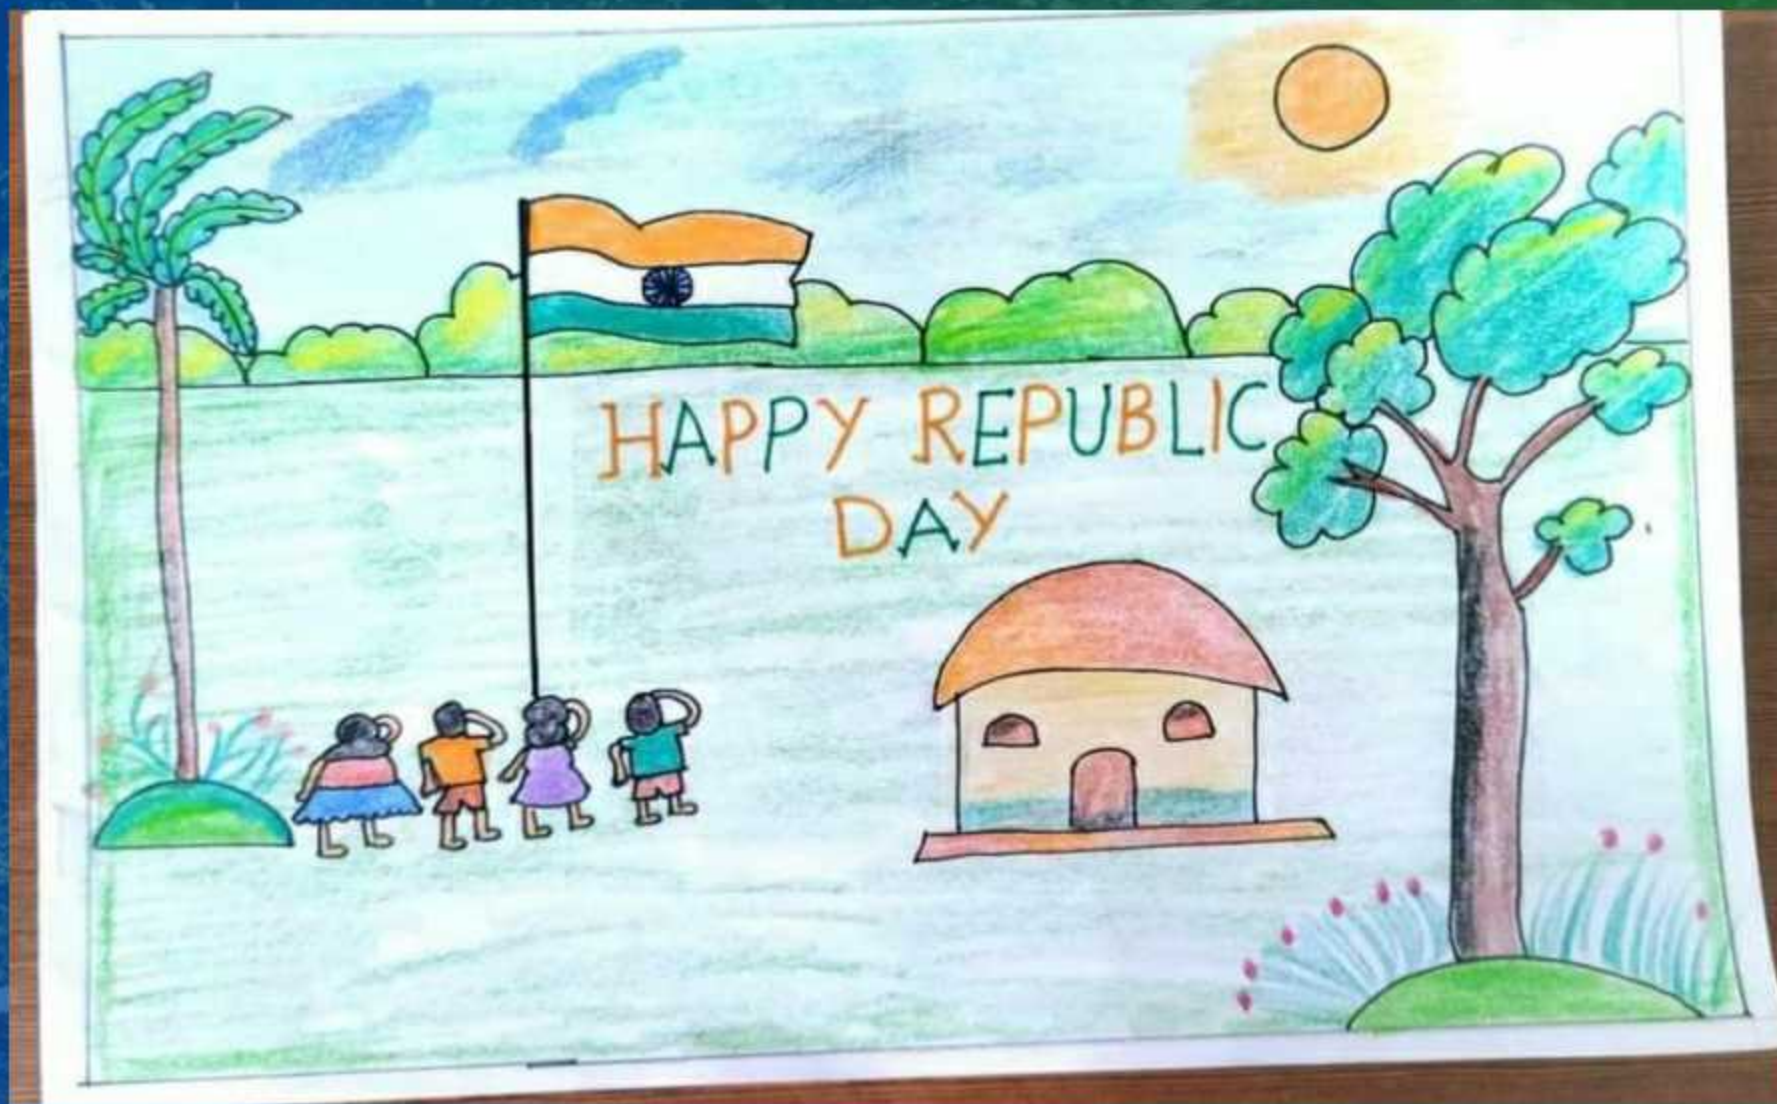 HAPPY REPUBLIC
DAY